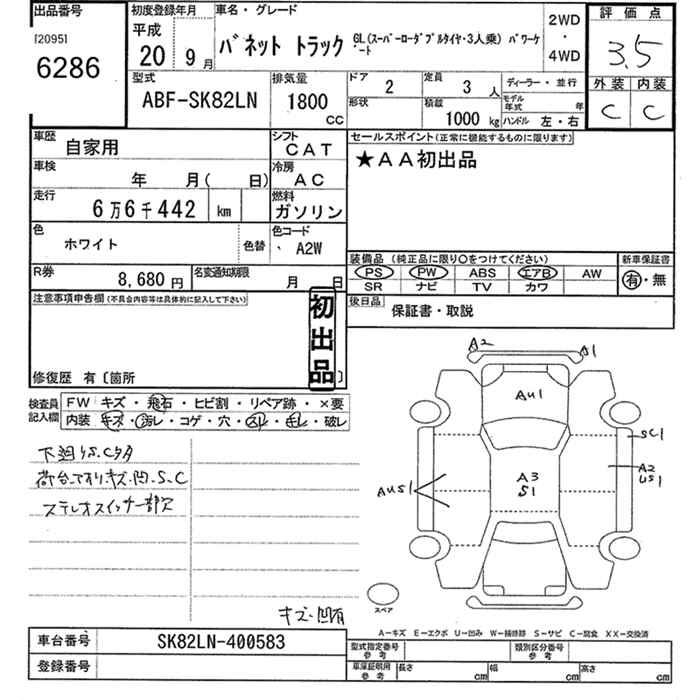 出品番号
[20951
6286
初度登録年月
平成
20 9月
車名・グレード
バネット トラック
GL(スーパーローダブルタイヤ・3人乗) パワーゲート
2WD
・
4WD
評価点
3.5
外装 内装
C C
型式
ABF-SK82LN
排気量
1800
CC
ドア
2
形状
定員
3人
積載
1000kg
ディーラー・並行
モデル年式 年
ハンドル 左・右
車歴
自家用
シフト
CAT
車検
年 月( 日)
冷房
AC
走行
6万6千442 km
燃料
ガソリン
色
ホワイト
色替
色コード
A2W
R券
8,680円
名変通知期限
月 日
セールスポイント(正常に機能するものに限ります)
★AA初出品
装備品(純正品に限り○をつけてください)
PS PW ABS エアB AW
SR ナビ TV カワ
新車保証書
有・無
後日品
保証書・取説
注意事項申告欄(不具合内容等は具体的に記入して下さい)
初出品
修復歴 有〔箇所 〕
検査員記入欄
FW キズ・飛石・ヒビ割・リペア跡・×要
内装 キズ・汚レ・コゲ・穴・スレ・キレ・破レ
下廻りS.C多
荷台アオリキズ.凹.S.C
ステレオスイッチ一部欠
キズ・凹有
A2
S1
AU1
SC1
A2
US1
AUS1
A3
S1
スペア
A―キズ E―エクボ U―凹み W―補修跡 S―サビ C―腐食 XX―交換済
車台番号
SK82LN-400583
登録番号
型式指定番号
参考
類別区分番号
参考
車庫証明用
参考
長さ cm
幅 cm
高さ cm